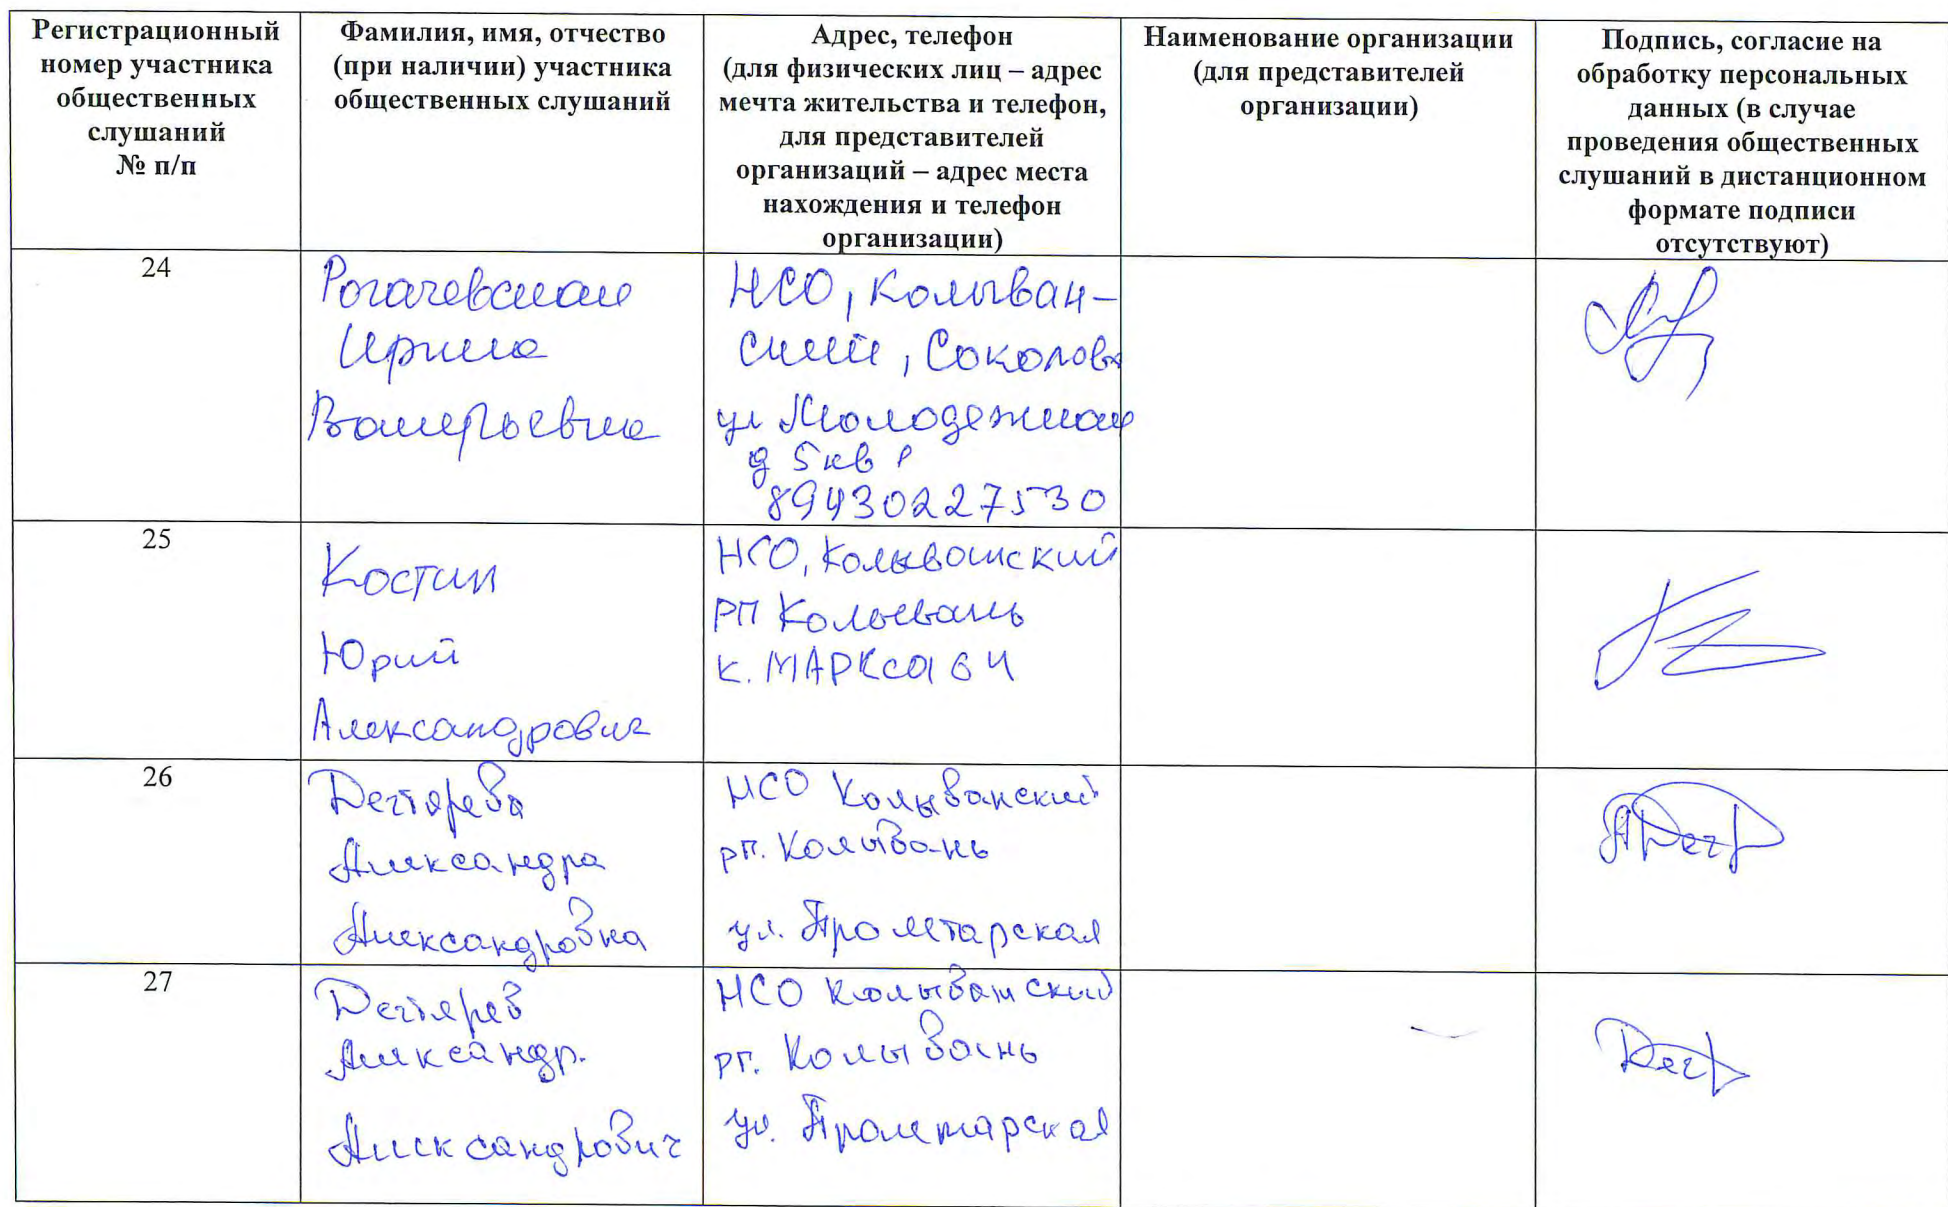 Регистрационный
номер участника
общественных
слушаний
№ п/п
Фамилия, имя, отчество
(при наличии) участника
общественных слушаний
Адрес, телефон
(для физических лиц – адрес
мечта жительства и телефон,
для представителей
организаций – адрес места
нахождения и телефон
организации)
Наименование организации
(для представителей
организации)
Подпись, согласие на
обработку персональных
данных (в случае
проведения общественных
слушаний в дистанционном
формате подписи
отсутствуют)
24
Рогачевская
Ирина
Валерьевна
НСО, Колыван-
ский, Соколово
ул Молодежная
д 5 кв
89930227530
25
Костин
Юрий
Александрович
НСО, Колыванский
РП Колывань
К. МАРКСа
26
Дегтярева
Александра
Александровна
НСО Колыванский
рп. Колывань
ул. Пролетарская
27
Дегтярев
Александр.
Александрович
НСО Колыванский
рп. Колывань
ул. Пролетарская